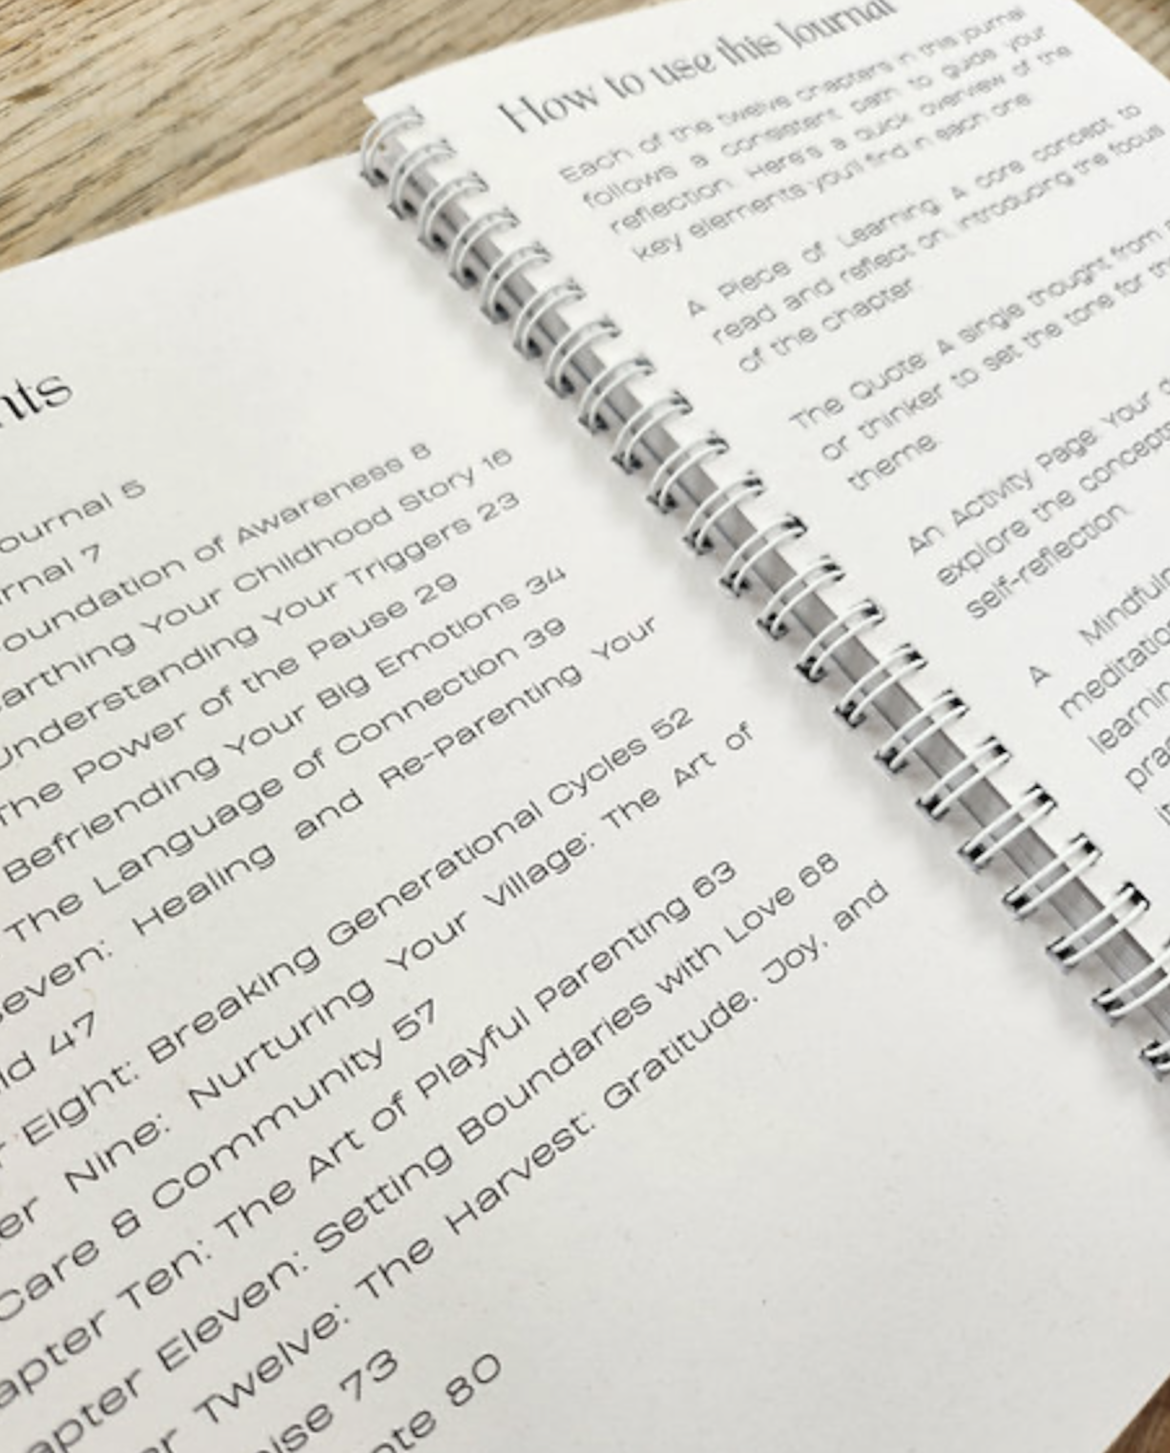 nts
ournal 5
rnal 7
oundation of Awareness 8
arthing Your Childhood Story 16
Understanding Your Triggers 23
The Power of the Pause 29
Befriending Your Big Emotions 34
The Language of Connection 39
Seven: Healing and Re-Parenting Your
ld 47
r Eight: Breaking Generational Cycles 52
er Nine: Nurturing Your Village: The Art of
Care & Community 57
apter Ten: The Art of Playful Parenting 63
apter Eleven: Setting Boundaries with Love 68
r Twelve: The Harvest: Gratitude, Joy, and
ise 73
ote 80
How to use this Journal
Each of the twelve chapters in this journal
follows a consistent path to guide your
reflection. Here's a quick overview of the
key elements you'll find in each one:
A Piece of Learning: A core concept to
read and reflect on, introducing the focus
of the chapter.
The Quote: A single thought from
or thinker to set the tone for the
theme.
An Activity Page: Your
explore the concepts
self-reflection.
A Mindfuln
meditatio
learnin
prac
it